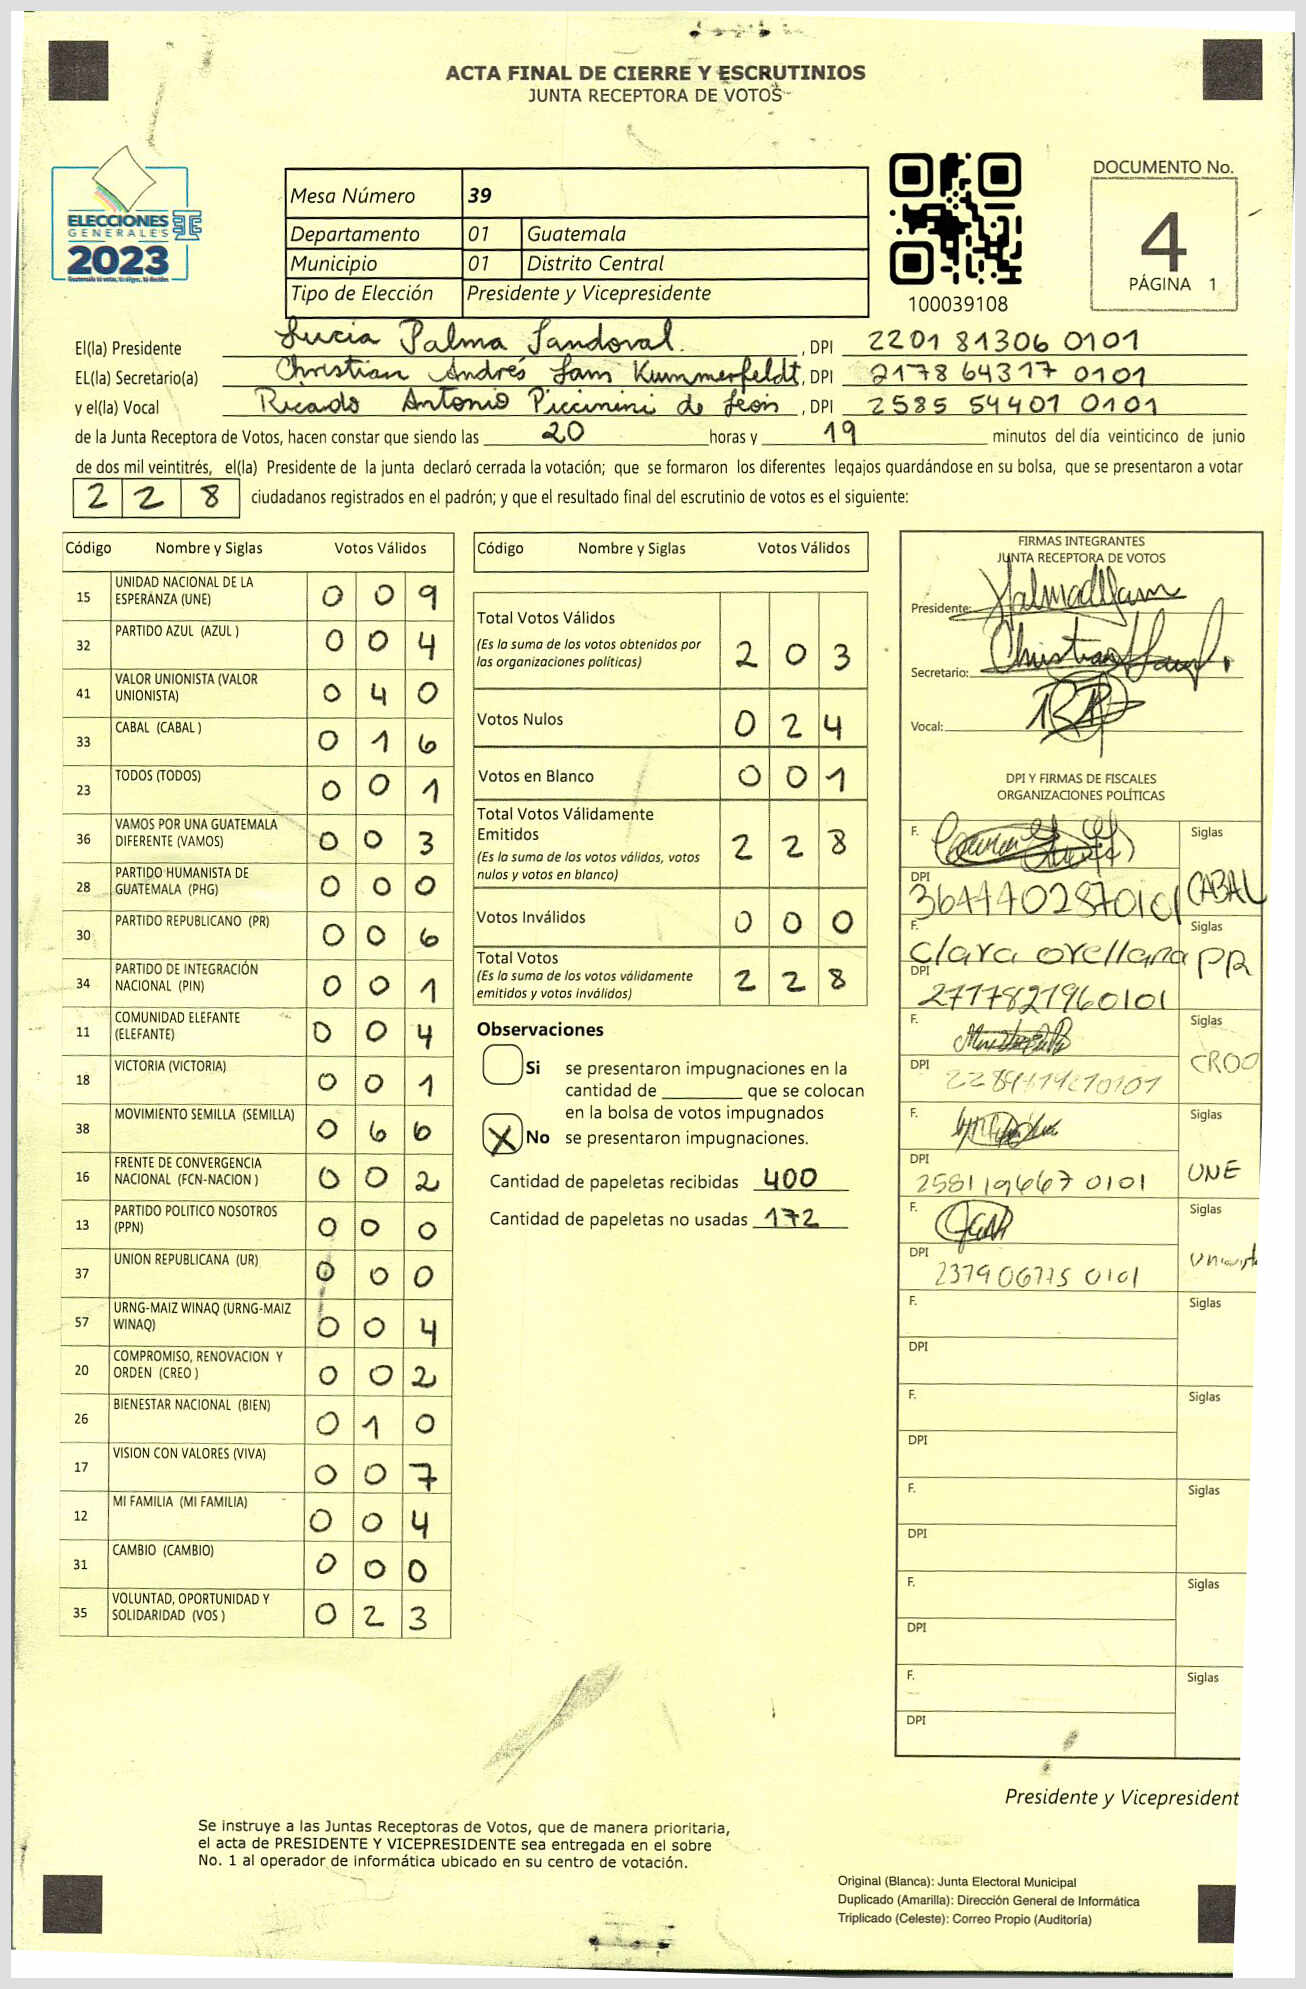 ACTA FINAL DE CIERRE Y ESCRUTINIOS
JUNTA RECEPTORA DE VOTOS
ELECCIONES
GENERALES
2023
Mesa Número 39
Departamento 01 Guatemala
Municipio 01 Distrito Central
Tipo de Elección Presidente y Vicepresidente
100039108
DOCUMENTO No.
4
PÁGINA 1
El(la) Presidente Lucia Palma Sandoval. , DPI 2201 81306 0101
EL(la) Secretario(a) Christian Andrés Sam Kummerfeldt, DPI 2178 64317 0101
y el(la) Vocal Ricardo Antonio Piccinini de León , DPI 2585 54401 0101
de la Junta Receptora de Votos, hacen constar que siendo las 20 horas y 19 minutos del día veinticinco de junio
de dos mil veintitrés, el(la) Presidente de la junta declaró cerrada la votación; que se formaron los diferentes legajos guardándose en su bolsa, que se presentaron a votar
228 ciudadanos registrados en el padrón; y que el resultado final del escrutinio de votos es el siguiente:
Código Nombre y Siglas Votos Válidos
15 UNIDAD NACIONAL DE LA ESPERANZA (UNE) 0 0 9
32 PARTIDO AZUL (AZUL ) 0 0 4
41 VALOR UNIONISTA (VALOR UNIONISTA) 0 4 0
33 CABAL (CABAL ) 0 1 6
23 TODOS (TODOS) 0 0 1
36 VAMOS POR UNA GUATEMALA DIFERENTE (VAMOS) 0 0 3
28 PARTIDO HUMANISTA DE GUATEMALA (PHG) 0 0 0
30 PARTIDO REPUBLICANO (PR) 0 0 6
34 PARTIDO DE INTEGRACIÓN NACIONAL (PIN) 0 0 1
11 COMUNIDAD ELEFANTE (ELEFANTE) 0 0 4
18 VICTORIA (VICTORIA) 0 0 1
38 MOVIMIENTO SEMILLA (SEMILLA) 0 6 6
16 FRENTE DE CONVERGENCIA NACIONAL (FCN-NACION ) 0 0 2
13 PARTIDO POLITICO NOSOTROS (PPN) 0 0 0
37 UNION REPUBLICANA (UR) 0 0 0
57 URNG-MAIZ WINAQ (URNG-MAIZ WINAQ) 0 0 4
20 COMPROMISO, RENOVACION Y ORDEN (CREO ) 0 0 2
26 BIENESTAR NACIONAL (BIEN) 0 1 0
17 VISION CON VALORES (VIVA) 0 0 7
12 MI FAMILIA (MI FAMILIA) 0 0 4
31 CAMBIO (CAMBIO) 0 0 0
35 VOLUNTAD, OPORTUNIDAD Y SOLIDARIDAD (VOS ) 0 2 3
Código Nombre y Siglas Votos Válidos
Total Votos Válidos
(Es la suma de los votos obtenidos por las organizaciones políticas) 2 0 3
Votos Nulos 0 2 4
Votos en Blanco 0 0 1
Total Votos Válidamente Emitidos
(Es la suma de los votos válidos, votos nulos y votos en blanco) 2 2 8
Votos Inválidos 0 0 0
Total Votos
(Es la suma de los votos válidamente emitidos y votos inválidos) 2 2 8
Observaciones
Si se presentaron impugnaciones en la
cantidad de ________ que se colocan
en la bolsa de votos impugnados
X No se presentaron impugnaciones.
Cantidad de papeletas recibidas 400
Cantidad de papeletas no usadas 172
FIRMAS INTEGRANTES
JUNTA RECEPTORA DE VOTOS
Presidente:
Secretario:
Vocal:
DPI Y FIRMAS DE FISCALES
ORGANIZACIONES POLÍTICAS
F. Siglas
DPI CABAL
F. Clara Orellana Siglas PR
DPI 2777821960101
F. Siglas
DPI
F. Siglas
DPI 2581196670101 UNE
F. Siglas
DPI 2379 06775 0101
F. Siglas
DPI
F. Siglas
DPI
F. Siglas
DPI
F. Siglas
DPI
F. Siglas
DPI
Presidente y Vicepresident
Se instruye a las Juntas Receptoras de Votos, que de manera prioritaria,
el acta de PRESIDENTE Y VICEPRESIDENTE sea entregada en el sobre
No. 1 al operador de informática ubicado en su centro de votación.
Original (Blanca): Junta Electoral Municipal
Duplicado (Amarilla): Dirección General de Informática
Triplicado (Celeste): Correo Propio (Auditoría)